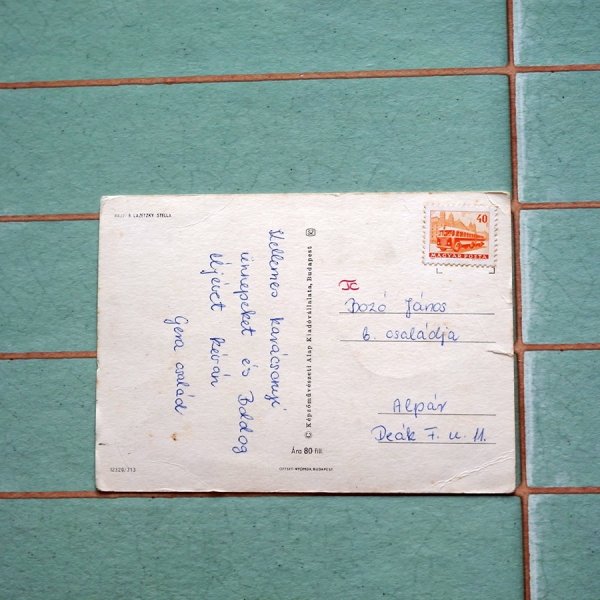 RAJZ: B. LAZETZKY STELLA
Kellemes karácsonyi
ünnepeket és Boldog
Újévet kíván
Gera család
12329/713
© Képzőművészeti Alap Kiadóvállalata, Budapest
Ára 80 fill.
OFFSET-NYOMDA, BUDAPEST
40
MAGYAR POSTA
Bozó János
b. családja
Alpár
Deák F. u. 11.